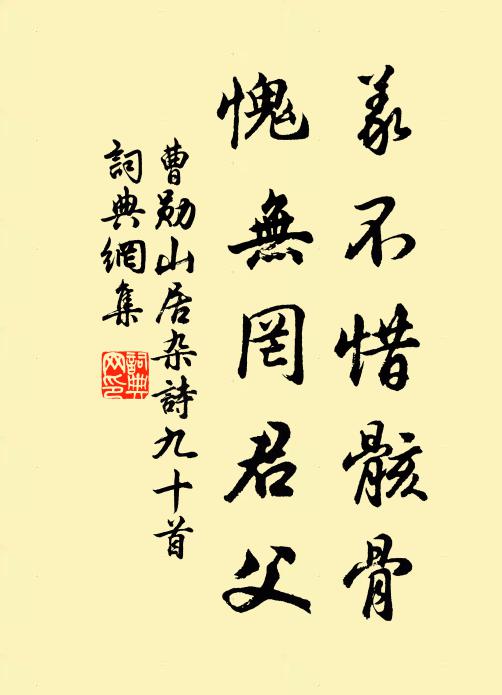 義不惜骸骨
愧無罔君父
曹勛山居杂詩九十首
詞典網集
詞典網印